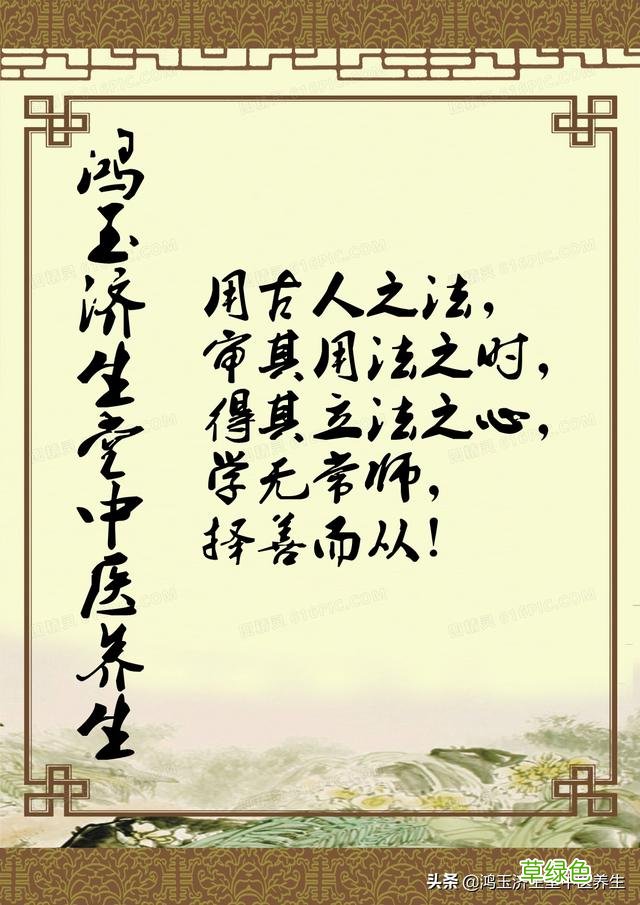 鸿玉济生堂中医养生
用古人之法，
审其用法之时，
得其立法之心，
学无常师，
择善而从！
草绿色
头条 @鸿玉济生堂中医养生